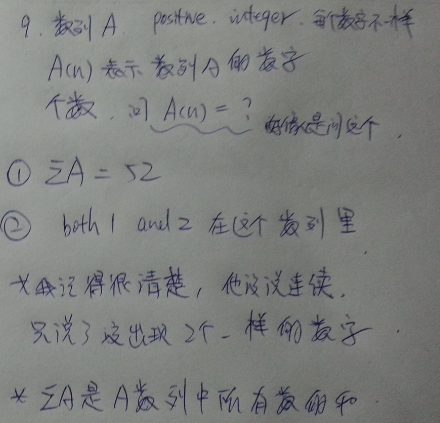 9. 数列 A. positive. integer. 每个数字不一样
A(n) 表示 数列 A 的 数字
个数. 问 A(n) = ? 好像是问这个.
① ΣA = 52
② both 1 and 2 在这个数列里
* 我记得很清楚, 他没说连续.
只说了没出现 2个一样的数字.
* ΣA是A数列中所有数的和.